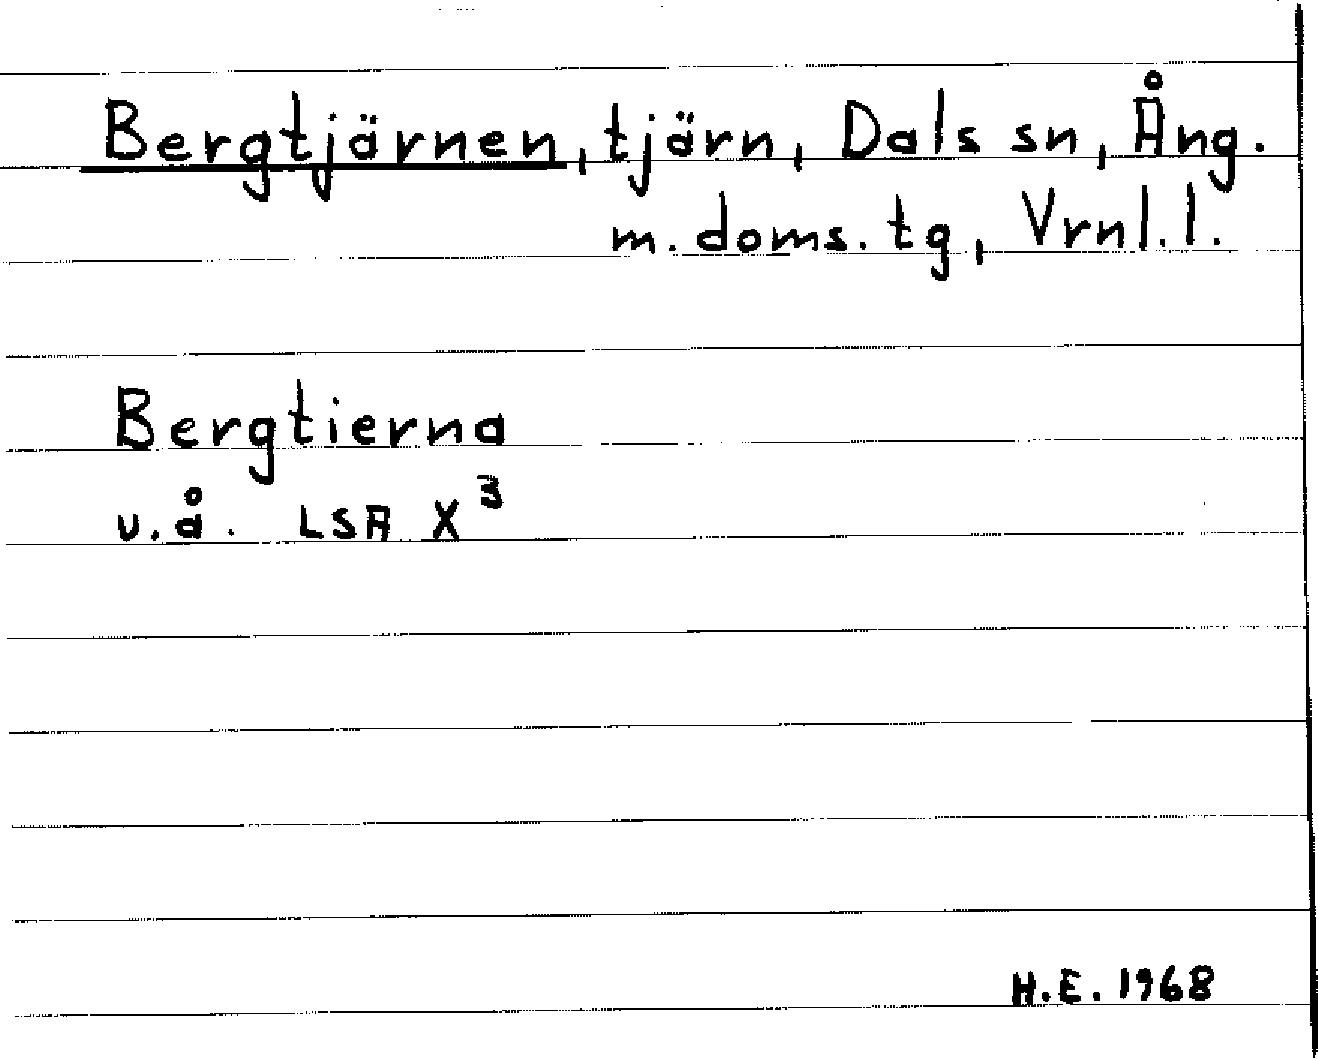 Bergtjärnen, tjärn, Dals sn, Ång.
m. doms. tg, Vrnl. l.
Bergtierna
u.å. LSA X³
H.E. 1968